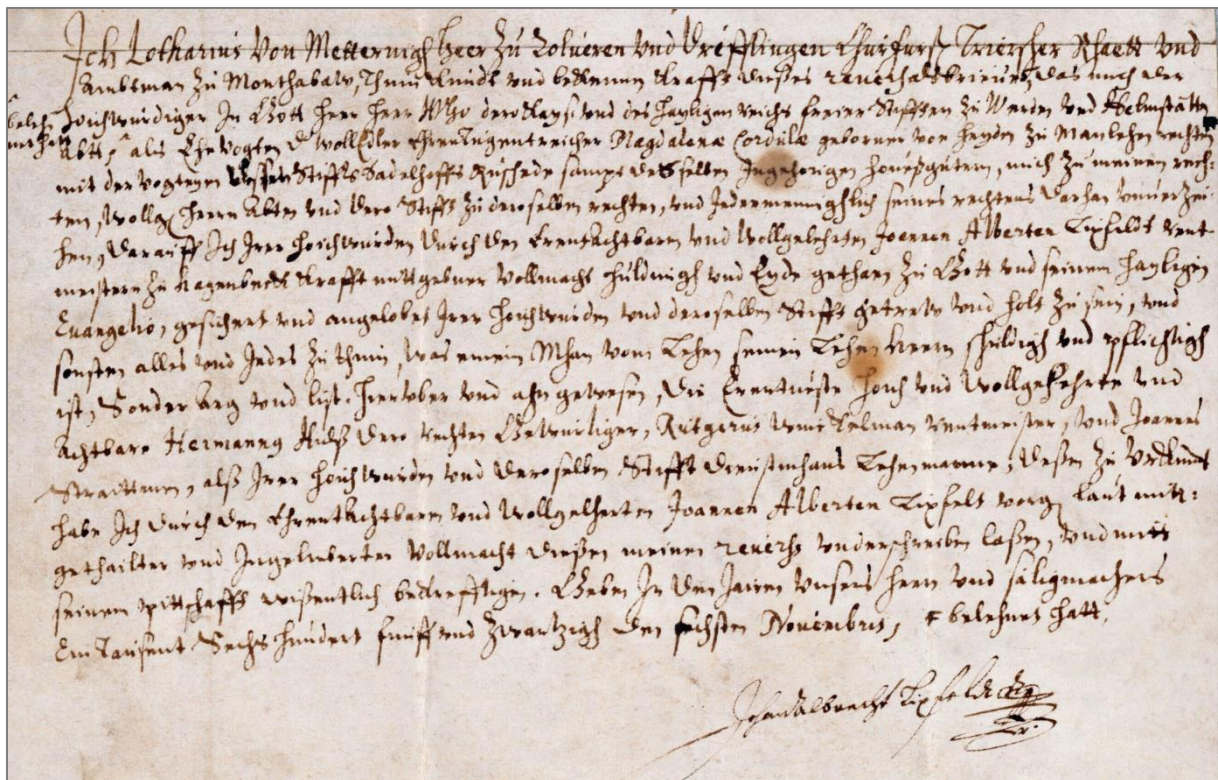 Ich Lotharius Von Metternigh Heer Zu Zolueren Vnd Dreifflingen Churfurst Trierscher Rhaett Vnd
Ambtman Zu Monthabaur, Thun Kundt vnd bekennen Krafft dieses reuerhalsbrieues, Das mich der
Hoichwurdiger In Gott Heer Herr Hugo dero Kays. vnd des Hayligen reichs freier Stifften Zu Werden vnd Helmstatten
Abtt, als Ehevogten D WollEdler EhrenTugentreicher Magdalenæ Cordulæ geborner von Heyden Zu Manlehn rechten
mit der Vogteyen Stiffts Sadelhoffs Ruschede sampt desselben Ingehorigen houesgutern, mich Zu meinen rech-
ten, Wollg. Herrn Abten vnd dero Stifft Zu deroselben rechten, vnd Jedermennighlich seines rechtens Darhan vnuerzei-
hen, Darauff Ich Irer Hoichwurden Durch den Erentachtbaren vnd Wollgelehrten Joannen Alberten Lipfeldt rent-
meistern Zu Hagenbeck Krafft mittgebner Vollmacht Huldungh vnd Eyde gethaen Zu Gott vnd seinem Hayligen
Euangelio, gesichert vnd angelobet Irer Hoichwurden vnd deroselben Stifft getrew vnd holt Zu sein, vnd
sonsten alles vnd Jedes Zu thuin, was einein Mhan vom Lehen seinein Lehen Herrn schuldigh vnd pflichtigh
ist, Sonder arg vnd list. Hieruber vnd ahn gewesen, Die Erentueste Hoich vnd Wollgelehrte vnd
Achtbare Hermanng Hulss Dero rechten Rutgerus Winckelman rentmeister, vnd Joannes
Straittman, alss Irer Hoichwurden vnd deroselben Stifft Lehenmanne, Dessen Zu Vrkundt
habe Ich Durch den Ehrentachtbaren vnd Wollgelherten Joannen Alberten Lipfelt vorg. laut mitt-
gethailter vnd Ingelieberter Vollmacht diessen meinen reuerss vnderschreiben lassen, vnd mitt
seinem pittschafft wissentlich bekrefftigen. Geben In den Jairen Vnsers Hern vnd saligmachers
Ein Tausent Sechs hundert funff vnd Zwantzigh den sechsten Nouembris, belehnet hatt.
Johan Albrecht Lipfeldt